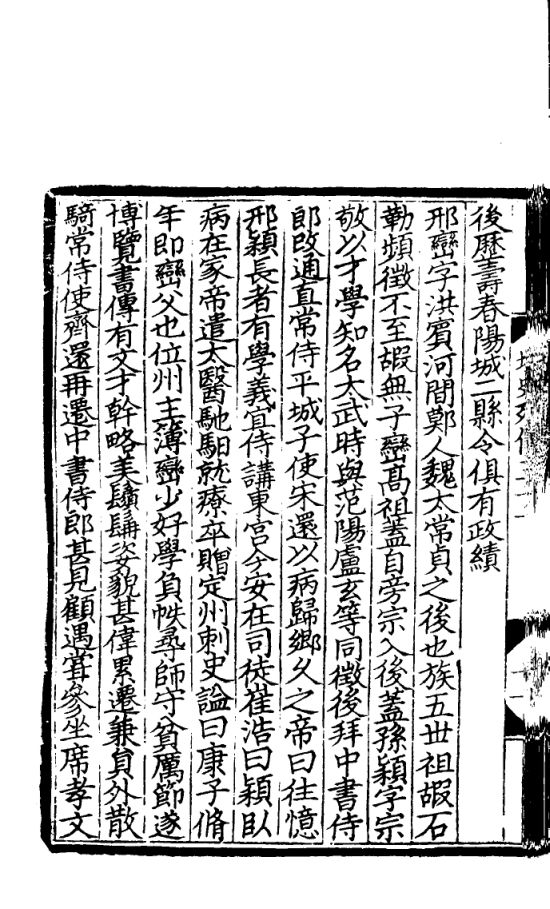 後歷壽春陽城二縣令俱有政績
邢巒字洪賓河間鄭人魏太常貞之後也族五世祖嘏石
勒頻徵不至嘏無子巒髙祖蓋自旁宗入後蓋孫穎字宗
敬以才學知名太武時與范陽盧玄等同徵後拜中書侍
郎改通直常侍平城子使宋還以病歸鄉乆之帝曰往憶
邢穎長者有學義宜侍講東宮今安在司徒崔浩曰穎臥
病在家帝遣太醫馳馹就療卒贈定州刺史諡曰康子脩
年即巒父也位州主簿巒少好學負帙尋師守貧厲節遂
博覽書傳有文才幹略美鬚髯姿貌甚偉累遷兼員外散
騎常侍使齊還再遷中書侍郎甚見顧遇甞參坐席孝文